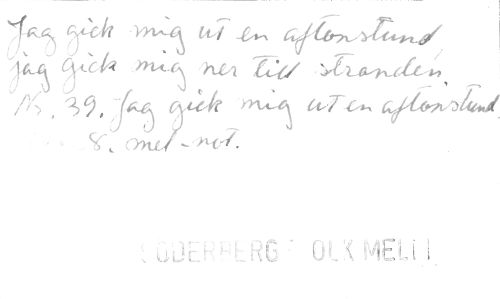 Jag gick mig ut en aftonstund,
jag gick mig ner till stranden.
Nr. 39. Jag gick mig ut en aftonstund.
8. mel-not.